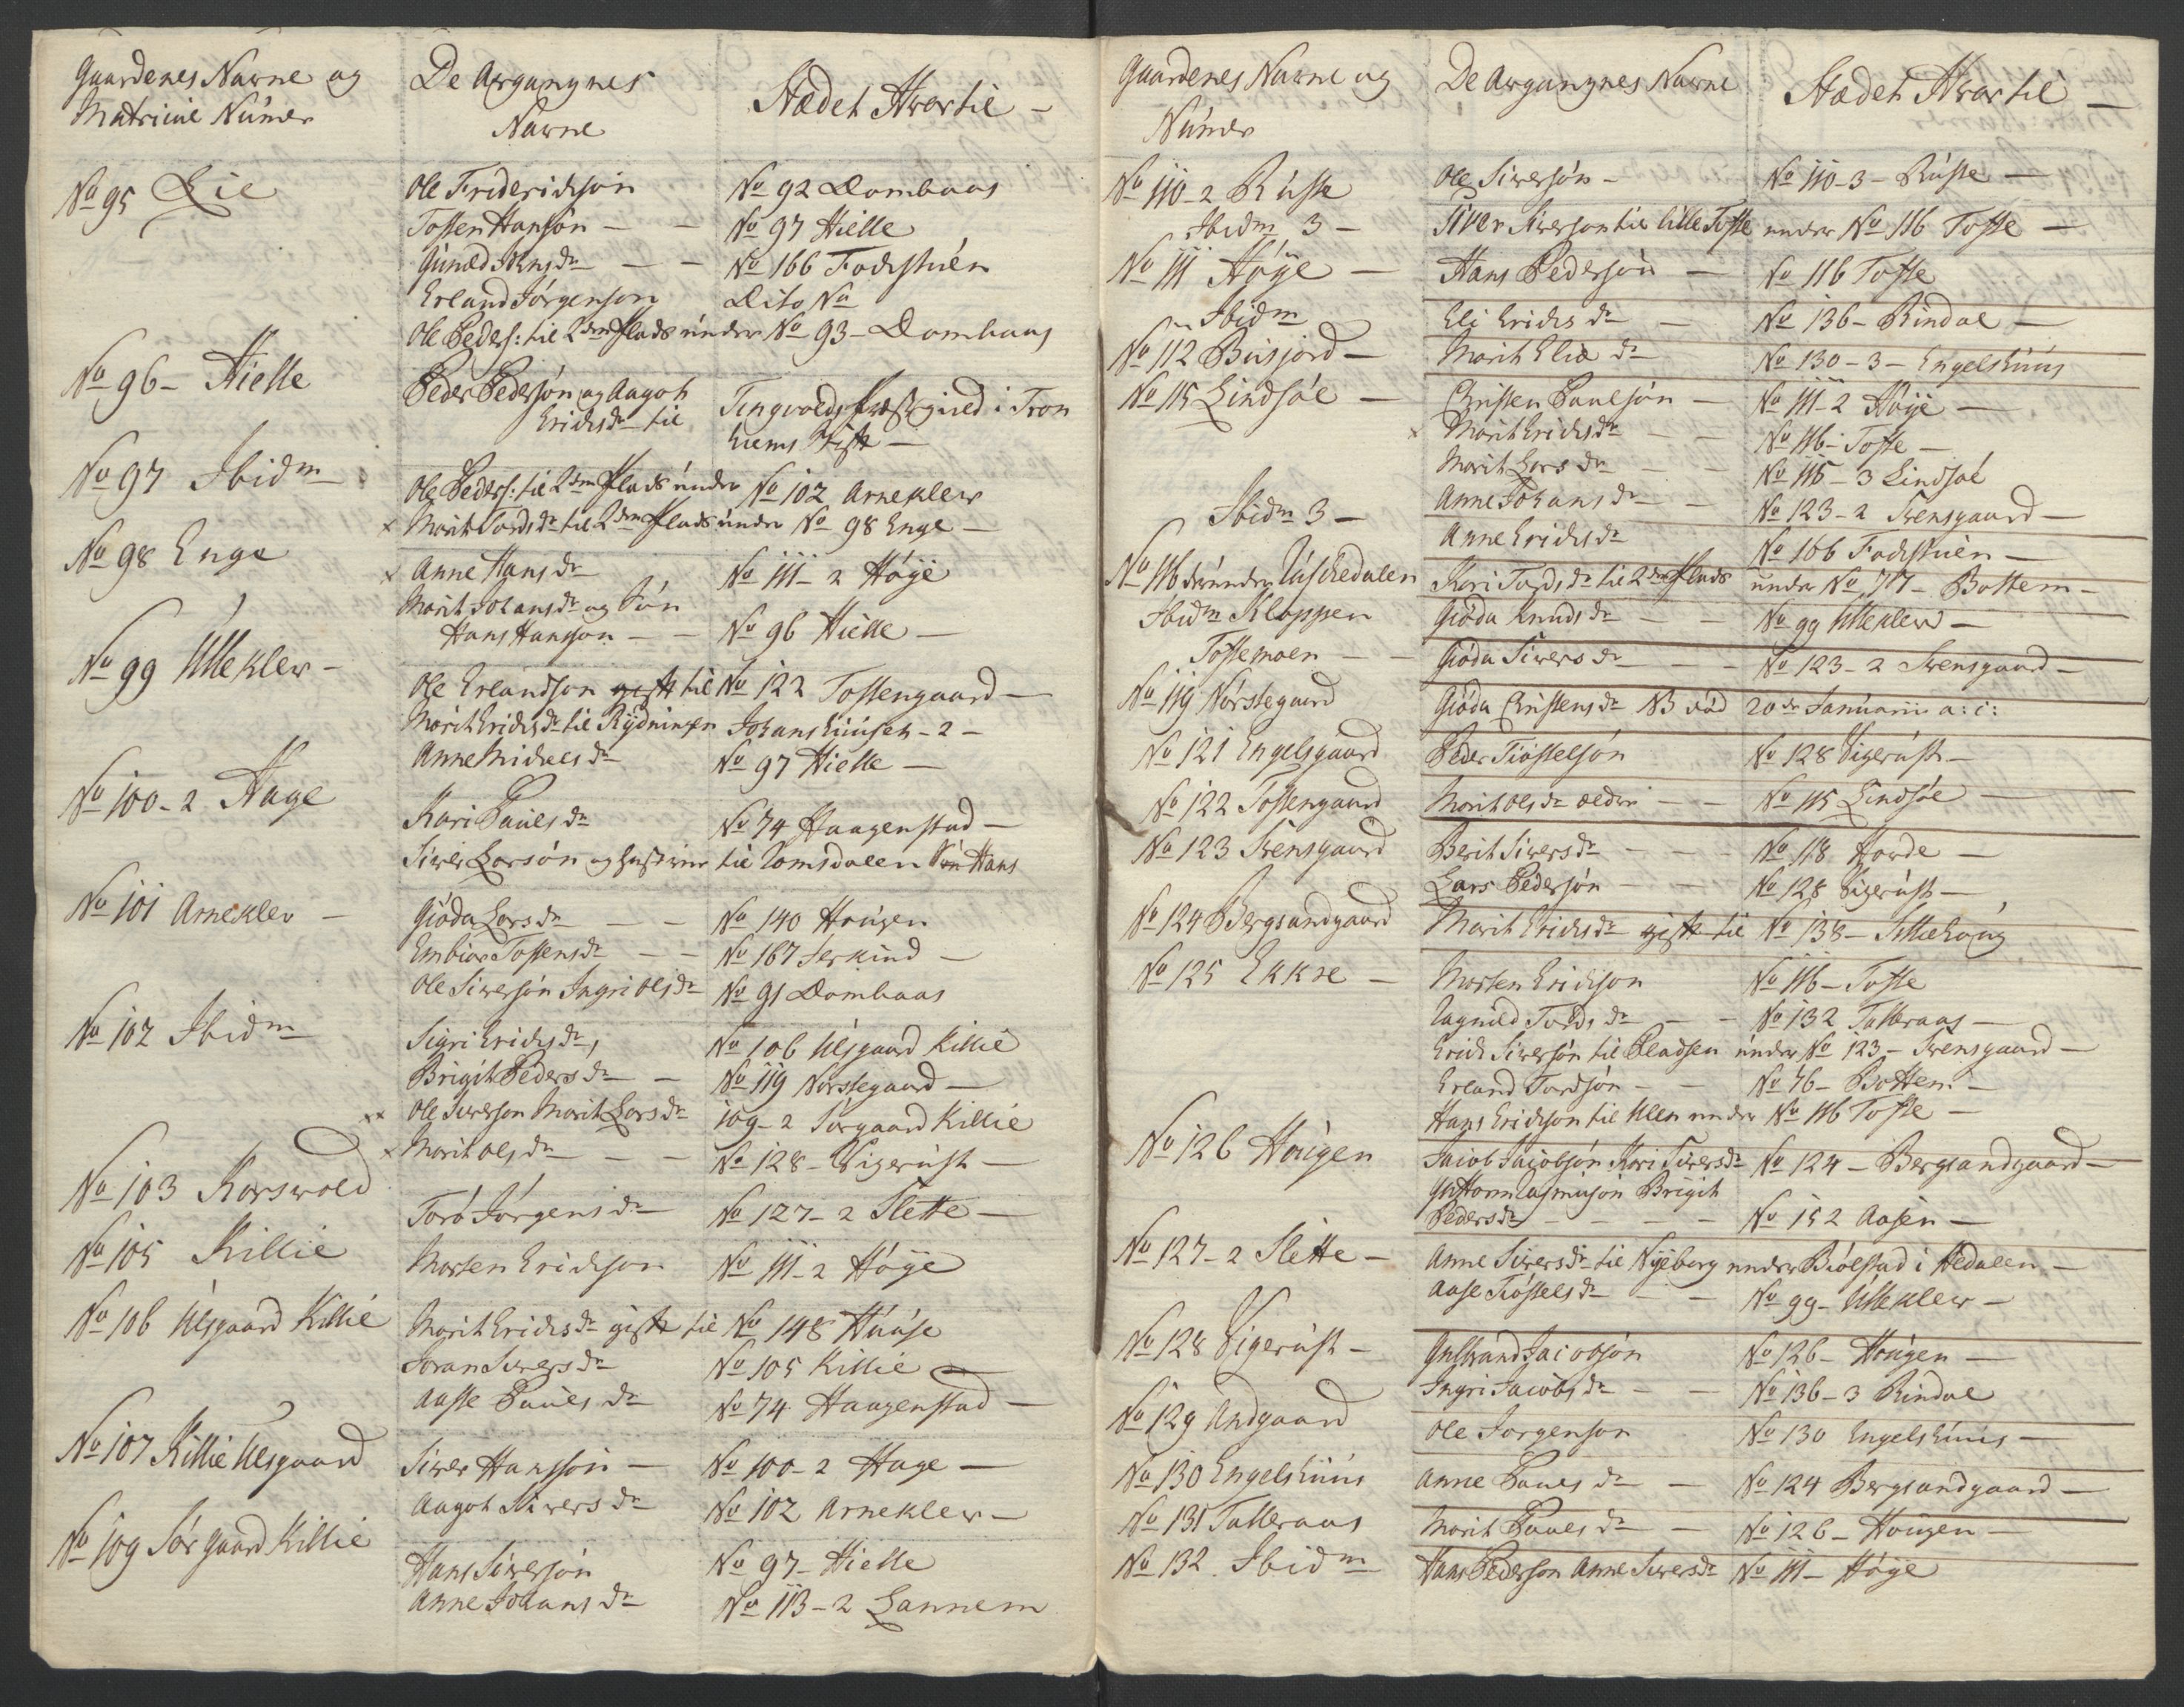 Gaardenes Navne og
Matricul Numer
De Afgangnes
Navne
Stædet Hvortil -
No 95 Lie
Ole Friderichsøn No 92 Dombaas
Tosten Hansøn - - No 97 Hielle
Guned Johnsdr - - No 166 Fochstuen
Erland Jørgenson Dito No
Ole Peders: til 2dem Plads under No 93 - Dombaas
No 96 - Hielle
Peder Pedersøn og Aagot
Erichsdr til
Tingvolds Præstegield i Tron
hiems Stift -
No 97 Ibidm
Ole Peders: til 2dem Plads under No 102 Arneklev
x Marit Tordsdr til 2dem Plads under No 98 Enge -
No 98 Enge
x Anne Hansdr No 111 - 2 Høye
Marit Johansdr og Søn
Hans Hansson - - No 96 Hielle -
No 99 Ulleklev -
Ole Erlandson gift til No 122 Tostengaard -
Marit Erichsdr til Rydningen Johanshuuset - 2 -
Anne Michelsdr No 97 Hielle -
No 100 - 2 Hage
Kari Paulsdr No 74 Haagenstad -
Siver Larsøn og hustrue til Romsdalen Søn Hans
No 101 Arneklev -
Giøda Larsdr - - No 140 Hougen
Embior Tostensdr - - No 167 Jerkind -
Ole Siversøn Ingri Olsdr No 91 Dombaas
No 102 Ibidm
Sigri Erichsdr, No 106 Ulsgaard Killie
Brigit Pedersdr - No 119 Norstegaard -
xx Ole Siverson Marit Larsdr 109 - 2 Sørgaard Killie
x Marit Olsdr - - No 128 - Vigerust -
No 103 Korsvold
Torø Jørgensdr - No 127 - 2 Slette -
No 105 Killie
Morten Erichson No 111 - 2 Høye
No 106 Ulsgaard Killie
Marit Erichsdr gift til No 148 Huuse
Joran Siversdr No 105 Killie -
Aasse Paulsdr No 74 Haagenstad -
No 107 Killie Ulsgaard
Siver Hanssøn - No 100 - 2 Hage -
Aagot Siversdr No 102 Arneklev -
No 109 Sør Gaard Killie
Hans Siversøn No 97 - Hielle
Anne Johansdr No 113 - 2 Lannem
Gaardenes Navne og
Numer
De Afgangnes Navne
Stædet Hvortil -
No 110 - 2 Ruste Ole Siversøn - No 110 - 3 - Ruste -
Ibidm 3 - Siver Siverson til lille Tofte under No 116 Tofte -
No 111 Høye - Hans Pedersøn - No 116 Tofte
Ibidm Eli Erichsdr - No 136 - Rindal -
No 112 Buisjord - Marit Eliædr - No 130 - 3 - Engelshuus
No 115 Lindsøe - Christen Paulsøn - No 111 - 2 Høye -
x Marit Erichsdr - - No 116 - Tofte -
Marit Larsdr - - No 115 - 3 Lindsøe
Ibidm 3 - Anne Johansdr - - No 123 - 2 Svensgaard -
Anne Erichsdr No 166 Fochstuen -
No 116 derunder Uuschedalen Kari Tordsdr til 2dem Plads under No 77 - Bottem -
Ibidm Kloppen Giøda Knudsdr - - No 99 Ulleklev -
Toftemoen - - Giøda Siversdr - - No 123 - 2 Svensgaard -
No 119 Nørstegaard Giøda Christensdr NB død 20de Januarii a: c:
No 121 Engelsgaard Peder Tiøstelsøn No 128 Vigerust -
No 122 Tostengaard Marit Olsdr ældre - - No 115 Lindsøe -
No 123 Svensgaard Berit Siversdr - - - No 118 Horde -
Lars Pedersøn - - No 128 Vigerust -
No 124 Bergsandgaard Marit Erichsdr gift til No 138 - Sillehoug
No 125 Ekkre - Morten Erichson No 116 - Tofte
Ragnild Tordsdr - - No 132 Talleraas -
Erich Siversøn til Pladsen under No 123 - Svensgaard -
Erland Tordsøn - - No 76 - Bottem -
Hans Erichson til Ulen under No 116 Tofte -
No 126 Hougen Jacob Jacobsøn Kari Siversdr No 124 - Bergsandgaard -
Guttorm Rasmusøn Brigit
Pedersdr - - - - No 152 Aasen -
No 127 - 2 Slette - Anne Siversdr til Nyeborg under Biølstad i Hedalen -
Aase Tiøstelsdr - - No 99 - Ulleklev -
No 128 Vigerust - Gulbrand Jacobsøn No 126 - Hougen -
Ingri Jacobsdr - - No 136 - 3 Rindal
No 129 Andgaard Ole Jørgenson No 130 Engelshuus -
No 130 Engelshuus Anne Paulsdr - No 124 Bergsandgaard -
No 131 Talleraas Marit Paulsdr - No 126 - Hougen -
No 132 Ibidm Hans Pederson Anne Siversdr No 111 - Høye